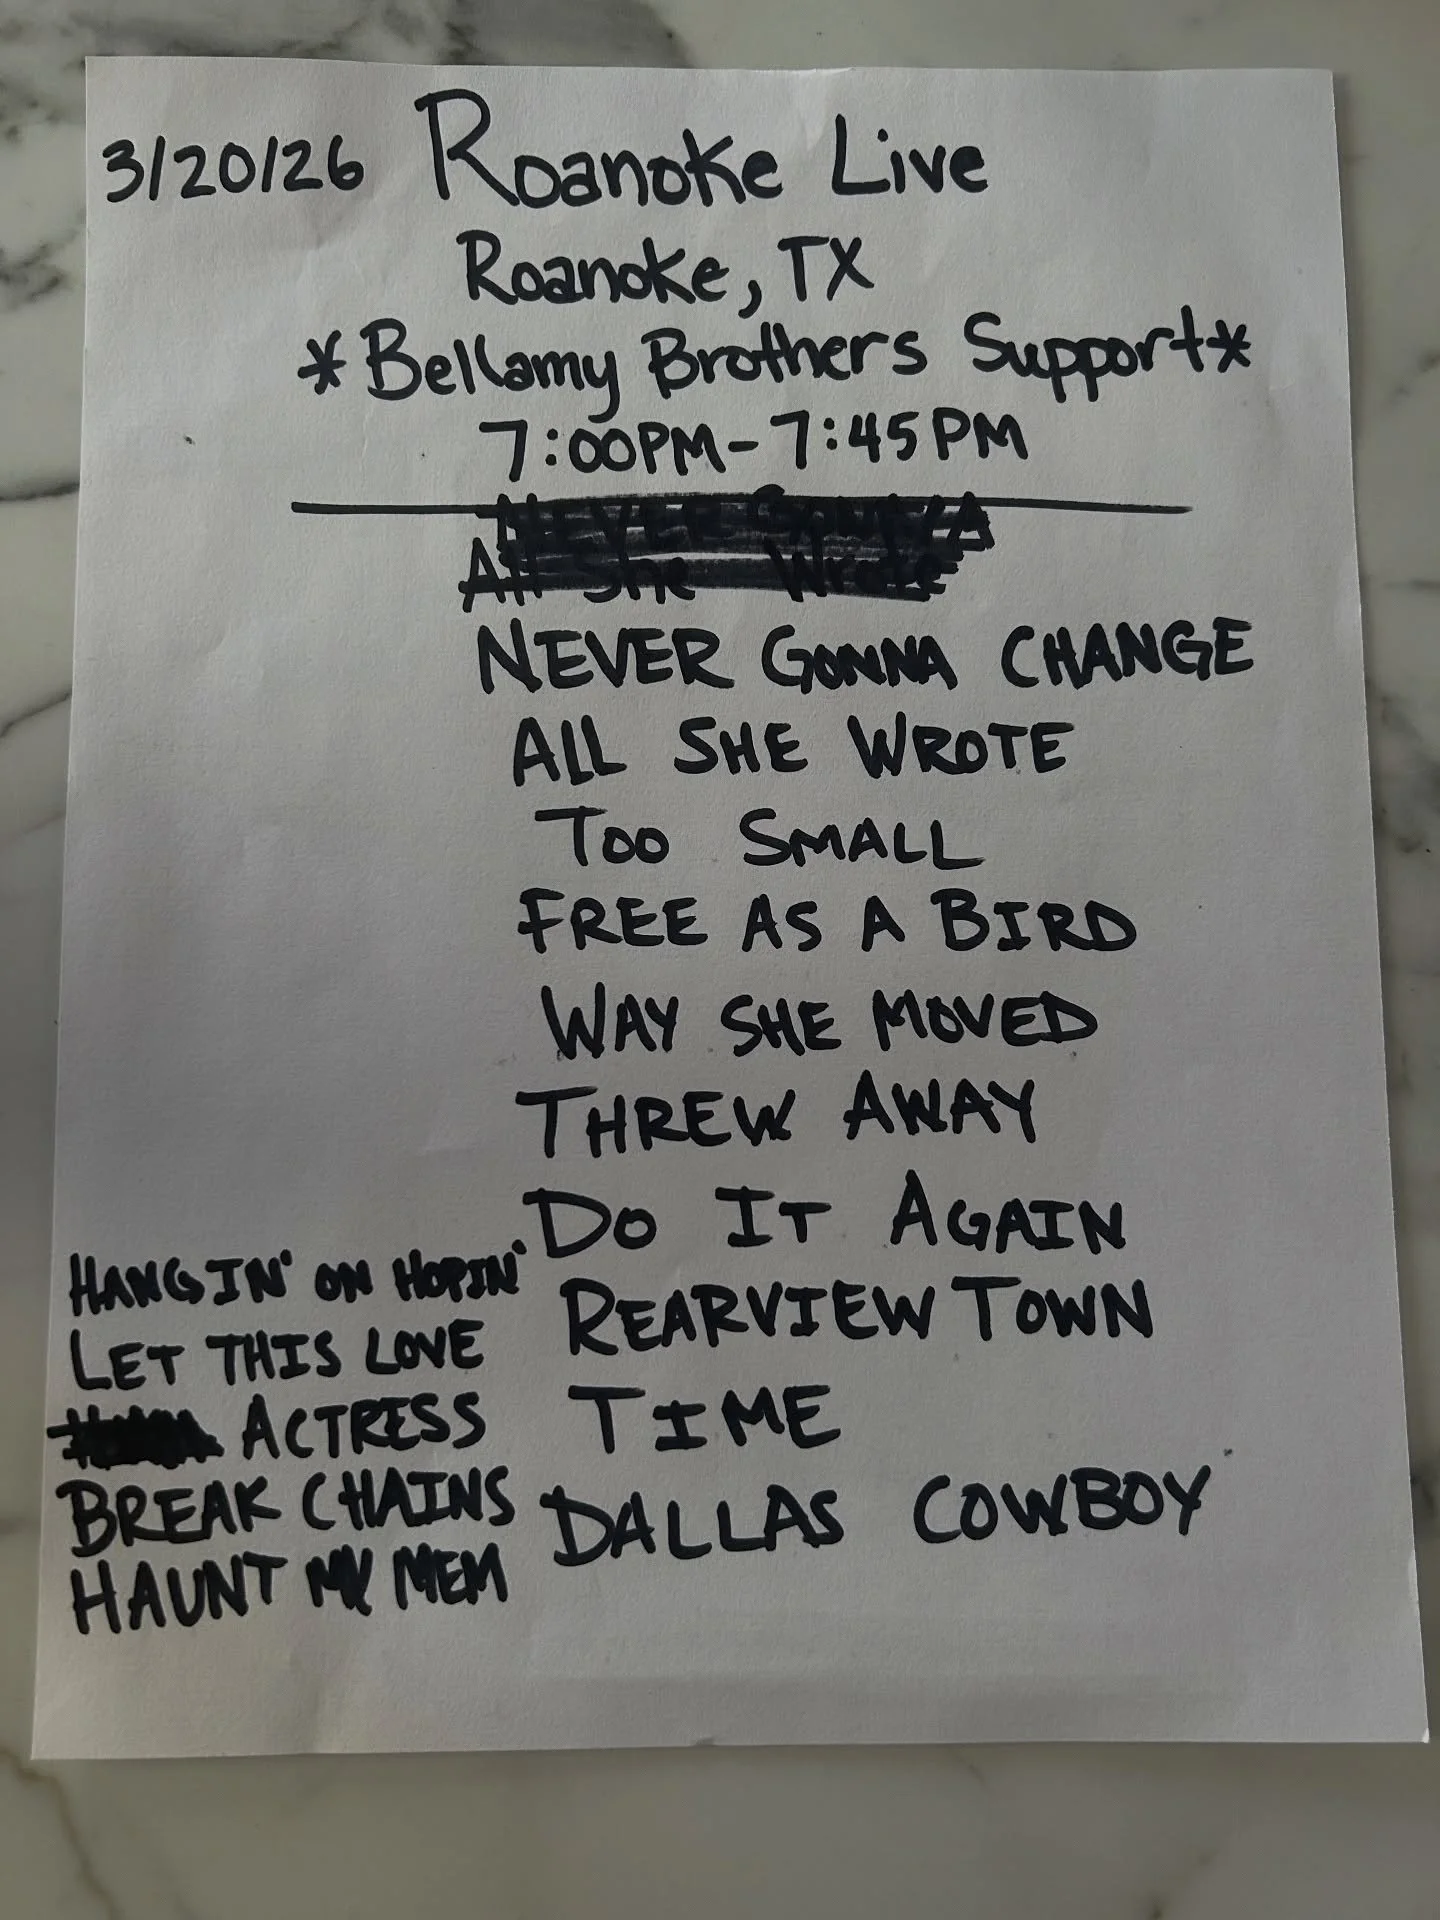 3/20/26 Roanoke Live
Roanoke, TX
*Bellamy Brothers Support*
7:00PM-7:45PM
All She Wrote
NEVER GONNA CHANGE
ALL SHE WROTE
TOO SMALL
FREE AS A BIRD
WAY SHE MOVED
THREW AWAY
DO IT AGAIN
REARVIEW TOWN
TIME
DALLAS COWBOY
HANGIN' ON HOPIN'
LET THIS LOVE
ACTRESS
BREAK CHAINS
HAUNT MY MEM